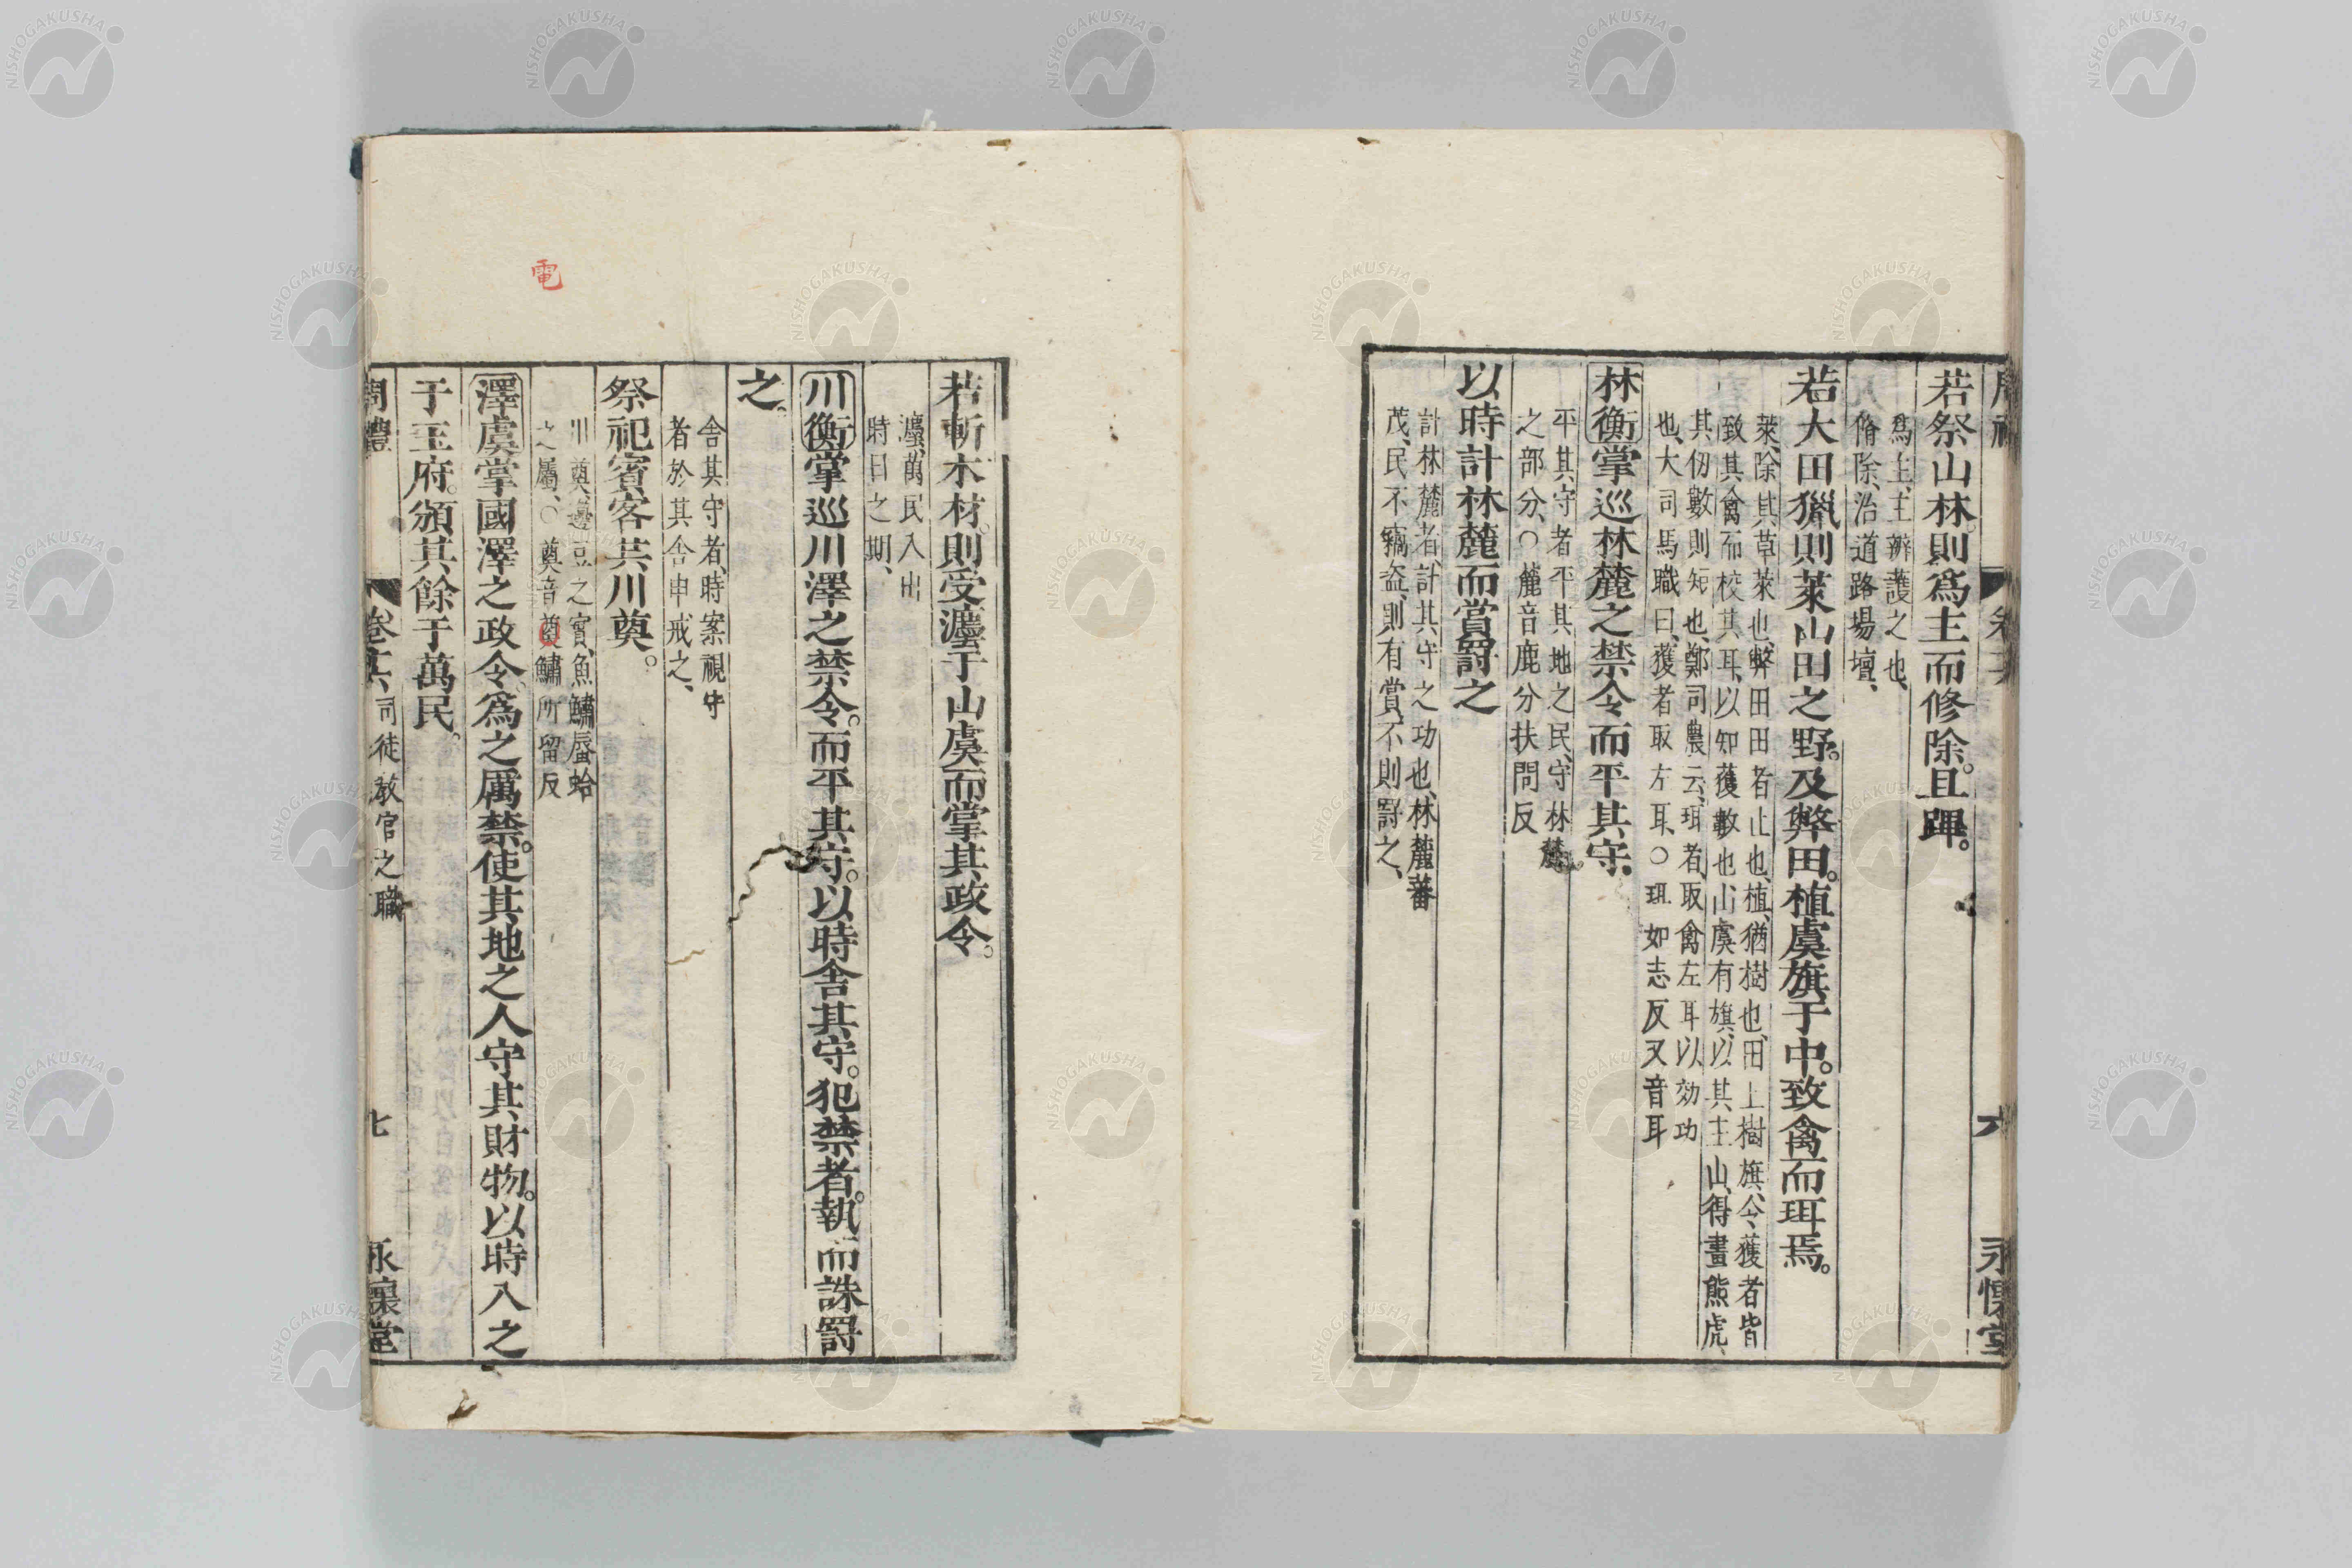 若祭山林。則爲主而修除。且蹕。
爲主、主辦護之也、
脩除、治道路場壇、
若大田獵則萊山田之野。及弊田。植虞旗于中。致禽而珥焉。
萊、除其草萊也、弊田田者止也、植、猶樹也、田上樹旗、令獲者皆
致其禽而校其耳、以知獲數也、山虞有旗、以其主山、得畫熊虎、
其仞數則短也、鄭司農云、珥者、取禽左耳以効功
也、大司馬職曰、獲者取左耳、〇珥如志反又音耳
林衡掌巡林麓之禁令而平其守、
平其守者平其地之民、守林麓
之部分、〇麓音鹿分扶問反
以時計林麓而賞罰之
計林麓者、計其守之功也、林麓蕃
茂、民不竊盜、則有賞、不則罸之、
周禮 卷十六 六 永懷堂
若斬木材。則受灋于山虞而掌其政令。
灋、萬民入出
時日之期、
川衡掌巡川澤之禁令。而平其守。以時舍其守。犯禁者。執而誅罰
之。
舍其守者、時案視守
者於其舍申戒之、
祭祀賓客共川奠。
川奠、籩豆之實、魚鱐蜃蛤
之屬、〇奠音 鱐所留反
澤虞掌國澤之政令。爲之厲禁。使其地之人守其財物。以時入之
于王府。頒其餘于萬民。
周禮 卷十六、司徒教官之職 七 永懷堂
電
NISHOGAKUSHA